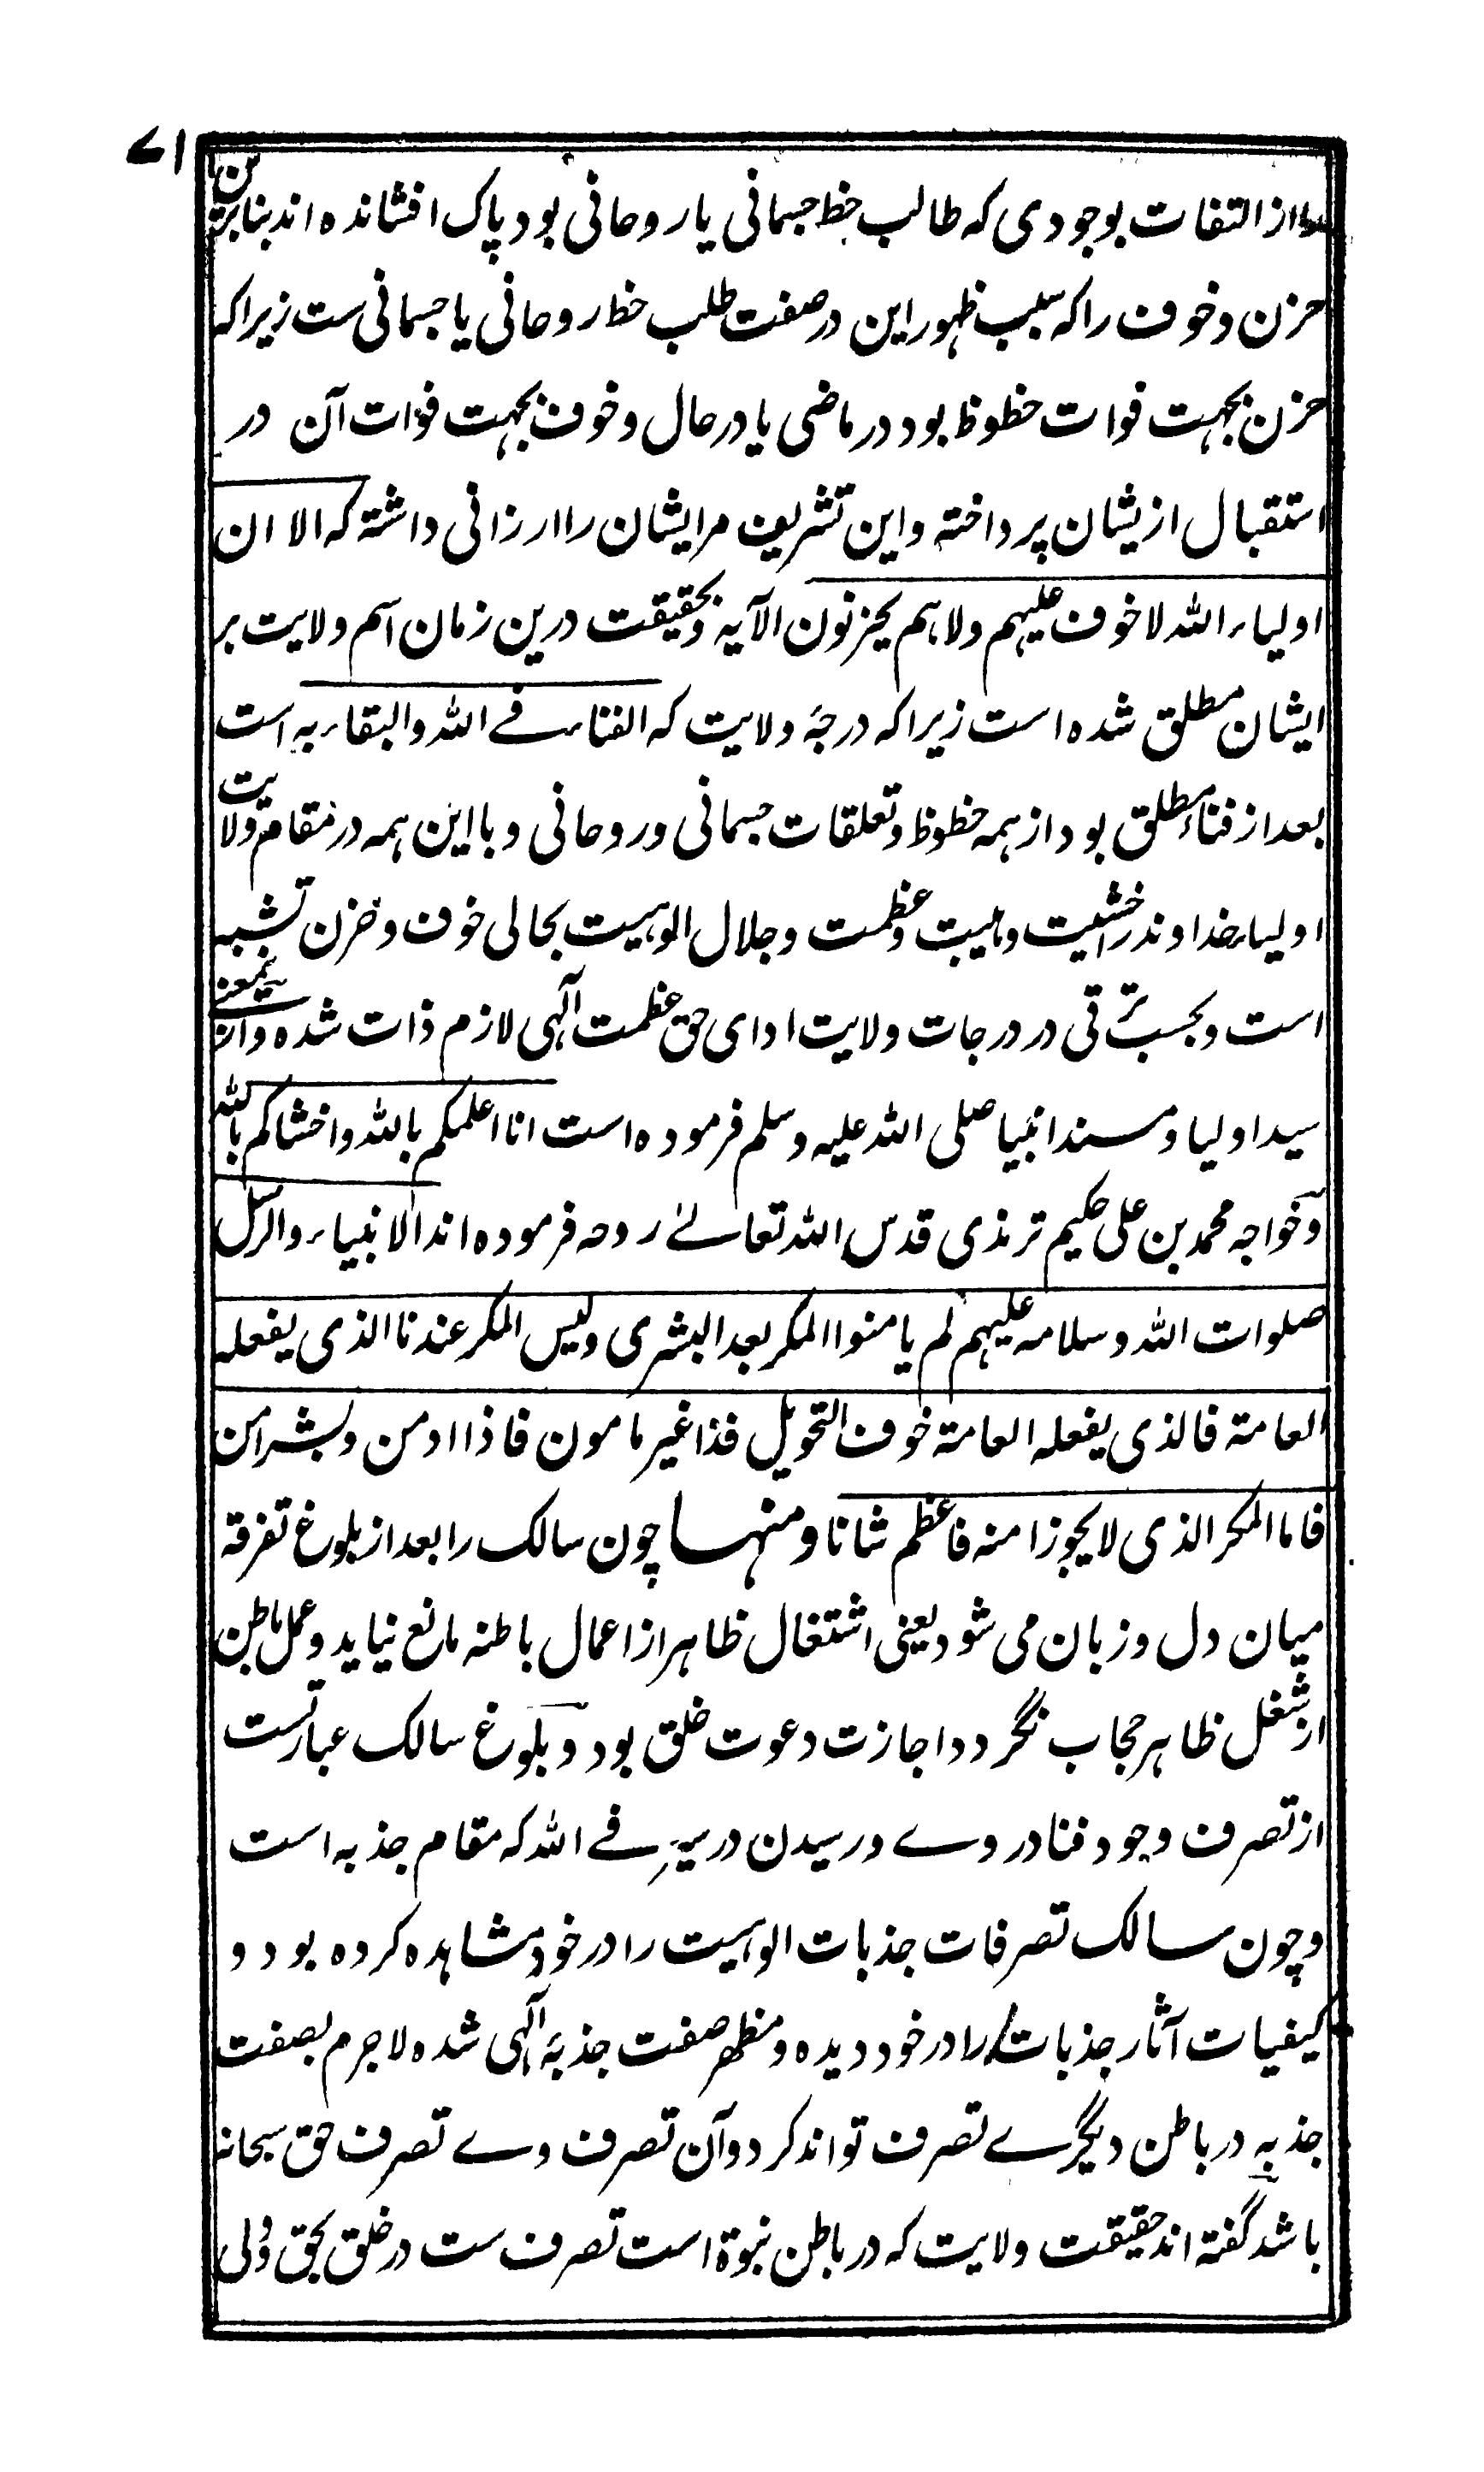 ۷۱
از التفات بوجودی که طالب حظ جسمانی یا روحانی بود پاک افشانده اند بنابرین
حزن و خوف را که سبب ظهور این در صفت طلب حظ روحانی یا جسمانی ست زیرا که
حزن بجهت فوات حظوظ بود در ماضی یا در حال و خوف بجهت فوات آن در
استقبال ازیشان پرداخته و این تشریف مرایشان را ارزانی داشته که الا ان
اولیاء الله لا خوف علیهم ولا هم یحزنون الآیه و بحقیقت درین زمان اسم ولایت بر
ایشان مطلق شده است زیرا که درجۀ ولایت که الفناء فے الله والبقاء به است
بعد از فناء مطلق بود از همه حظوظ و تعلقات جسمانی و روحانی و با این همه در مقام ولایت
اولیاء خداوند را خشیت و هیبت و عظمت و جلال الوهیت بحالی خوف و حزن تشبیه
است و بحسب ترقی در درجات ولایت ادای حق عظمت آلهی لازم ذات شده و ازین معنے
سید اولیا و مسند انبیا صلی الله علیه وسلم فرموده است انا اعلمکم بالله واخشاکم بالله
و خواجه محمد بن علی حکیم ترمذی قدس الله تعالے روحه فرموده اند الانبیاء والرسل
صلوات الله وسلامه علیهم لم یامنوا المکر بعد البشری ولیس المکر عندنا الذی یفعله
العامة فالذی یفعله العامة خوف التحویل فذا غیر مامون فاذا اومن وبشر امن
فاما المکر الذی لا یجوز امنه فاعظم شانا ومنها چون سالک را بعد از بلوغ تفرقه
میان دل و زبان می شود یعنی اشتغال ظاهر از اعمال باطنه مانع نیاید و عمل باطن
از شغل ظاهر حجاب نگردد اجازت دعوت خلق بود و بلوغ سالک عبارتست
از تصرف وجود فنا در وے و رسیدن در سیر فے الله که مقام جذبه است
و چون سالک تصرفات جذبات الوهیت را در خود مشاهده کرده بود و
کیفیات آثار جذبات را در خود دیده و مظهر صفت جذبۀ آلهی شده لاجرم بصفت
جذبه در باطن دیگرے تصرف تواند کرد و آن تصرف وے تصرف حق سبحانه
باشد گفته اند حقیقت ولایت که در باطن نبوة است تصرف ست در خلق بحق و ولی